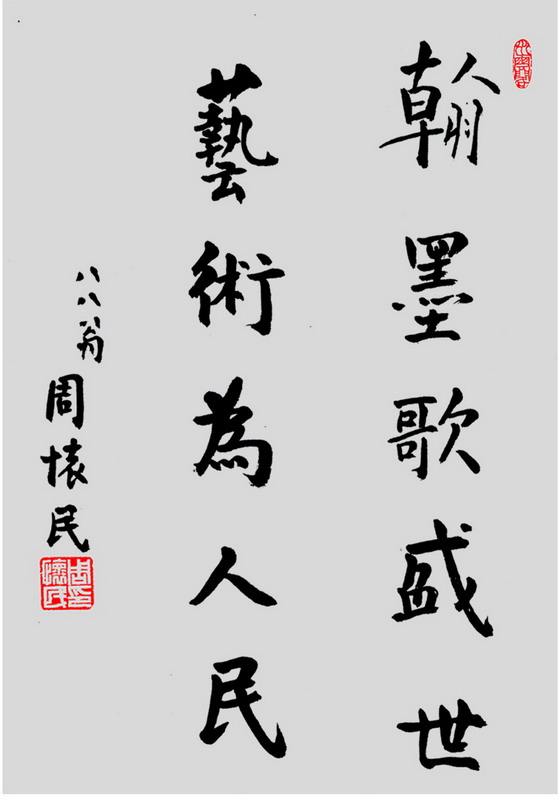 翰墨歌盛世
藝術為人民
八八翁
周懷民